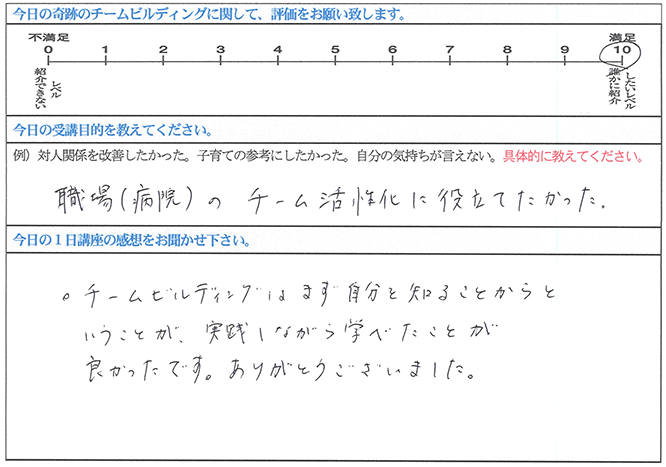 今日の奇跡のチームビルディングに関して、評価をお願い致します。
不満足 満足
0 1 2 3 4 5 6 7 8 9 10
紹介できない
レベル
誰かに紹介
したいレベル
今日の受講目的を教えてください。
例）対人関係を改善したかった。子育ての参考にしたかった。自分の気持ちが言えない。具体的に教えてください。
職場(病院)の チーム活性化に役立てたかった。
今日の１日講座の感想をお聞かせ下さい。
。チームビルディングはまず自分を知ることからと
いうことが、実践しながら学べたことが
良かったです。ありがとうございました。